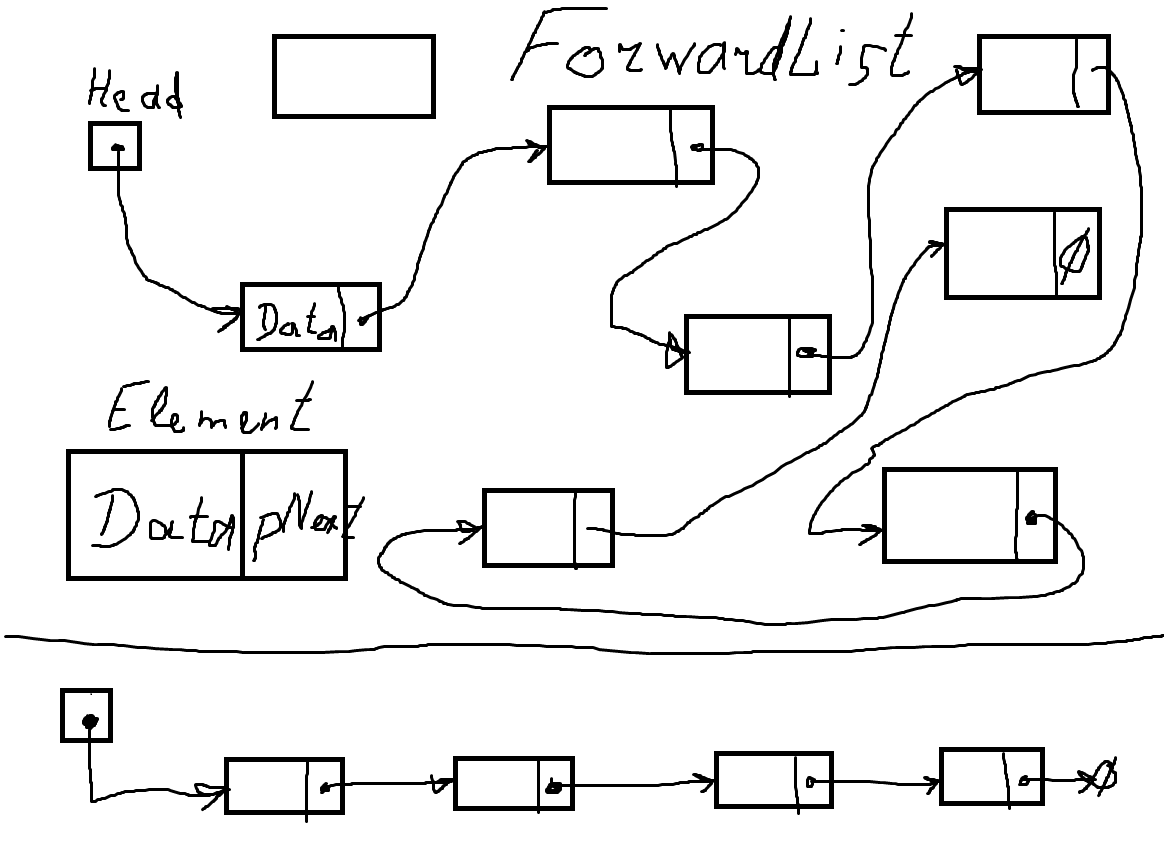 ForwardList
Head
Data
Ø
Element
Data pNext
Ø